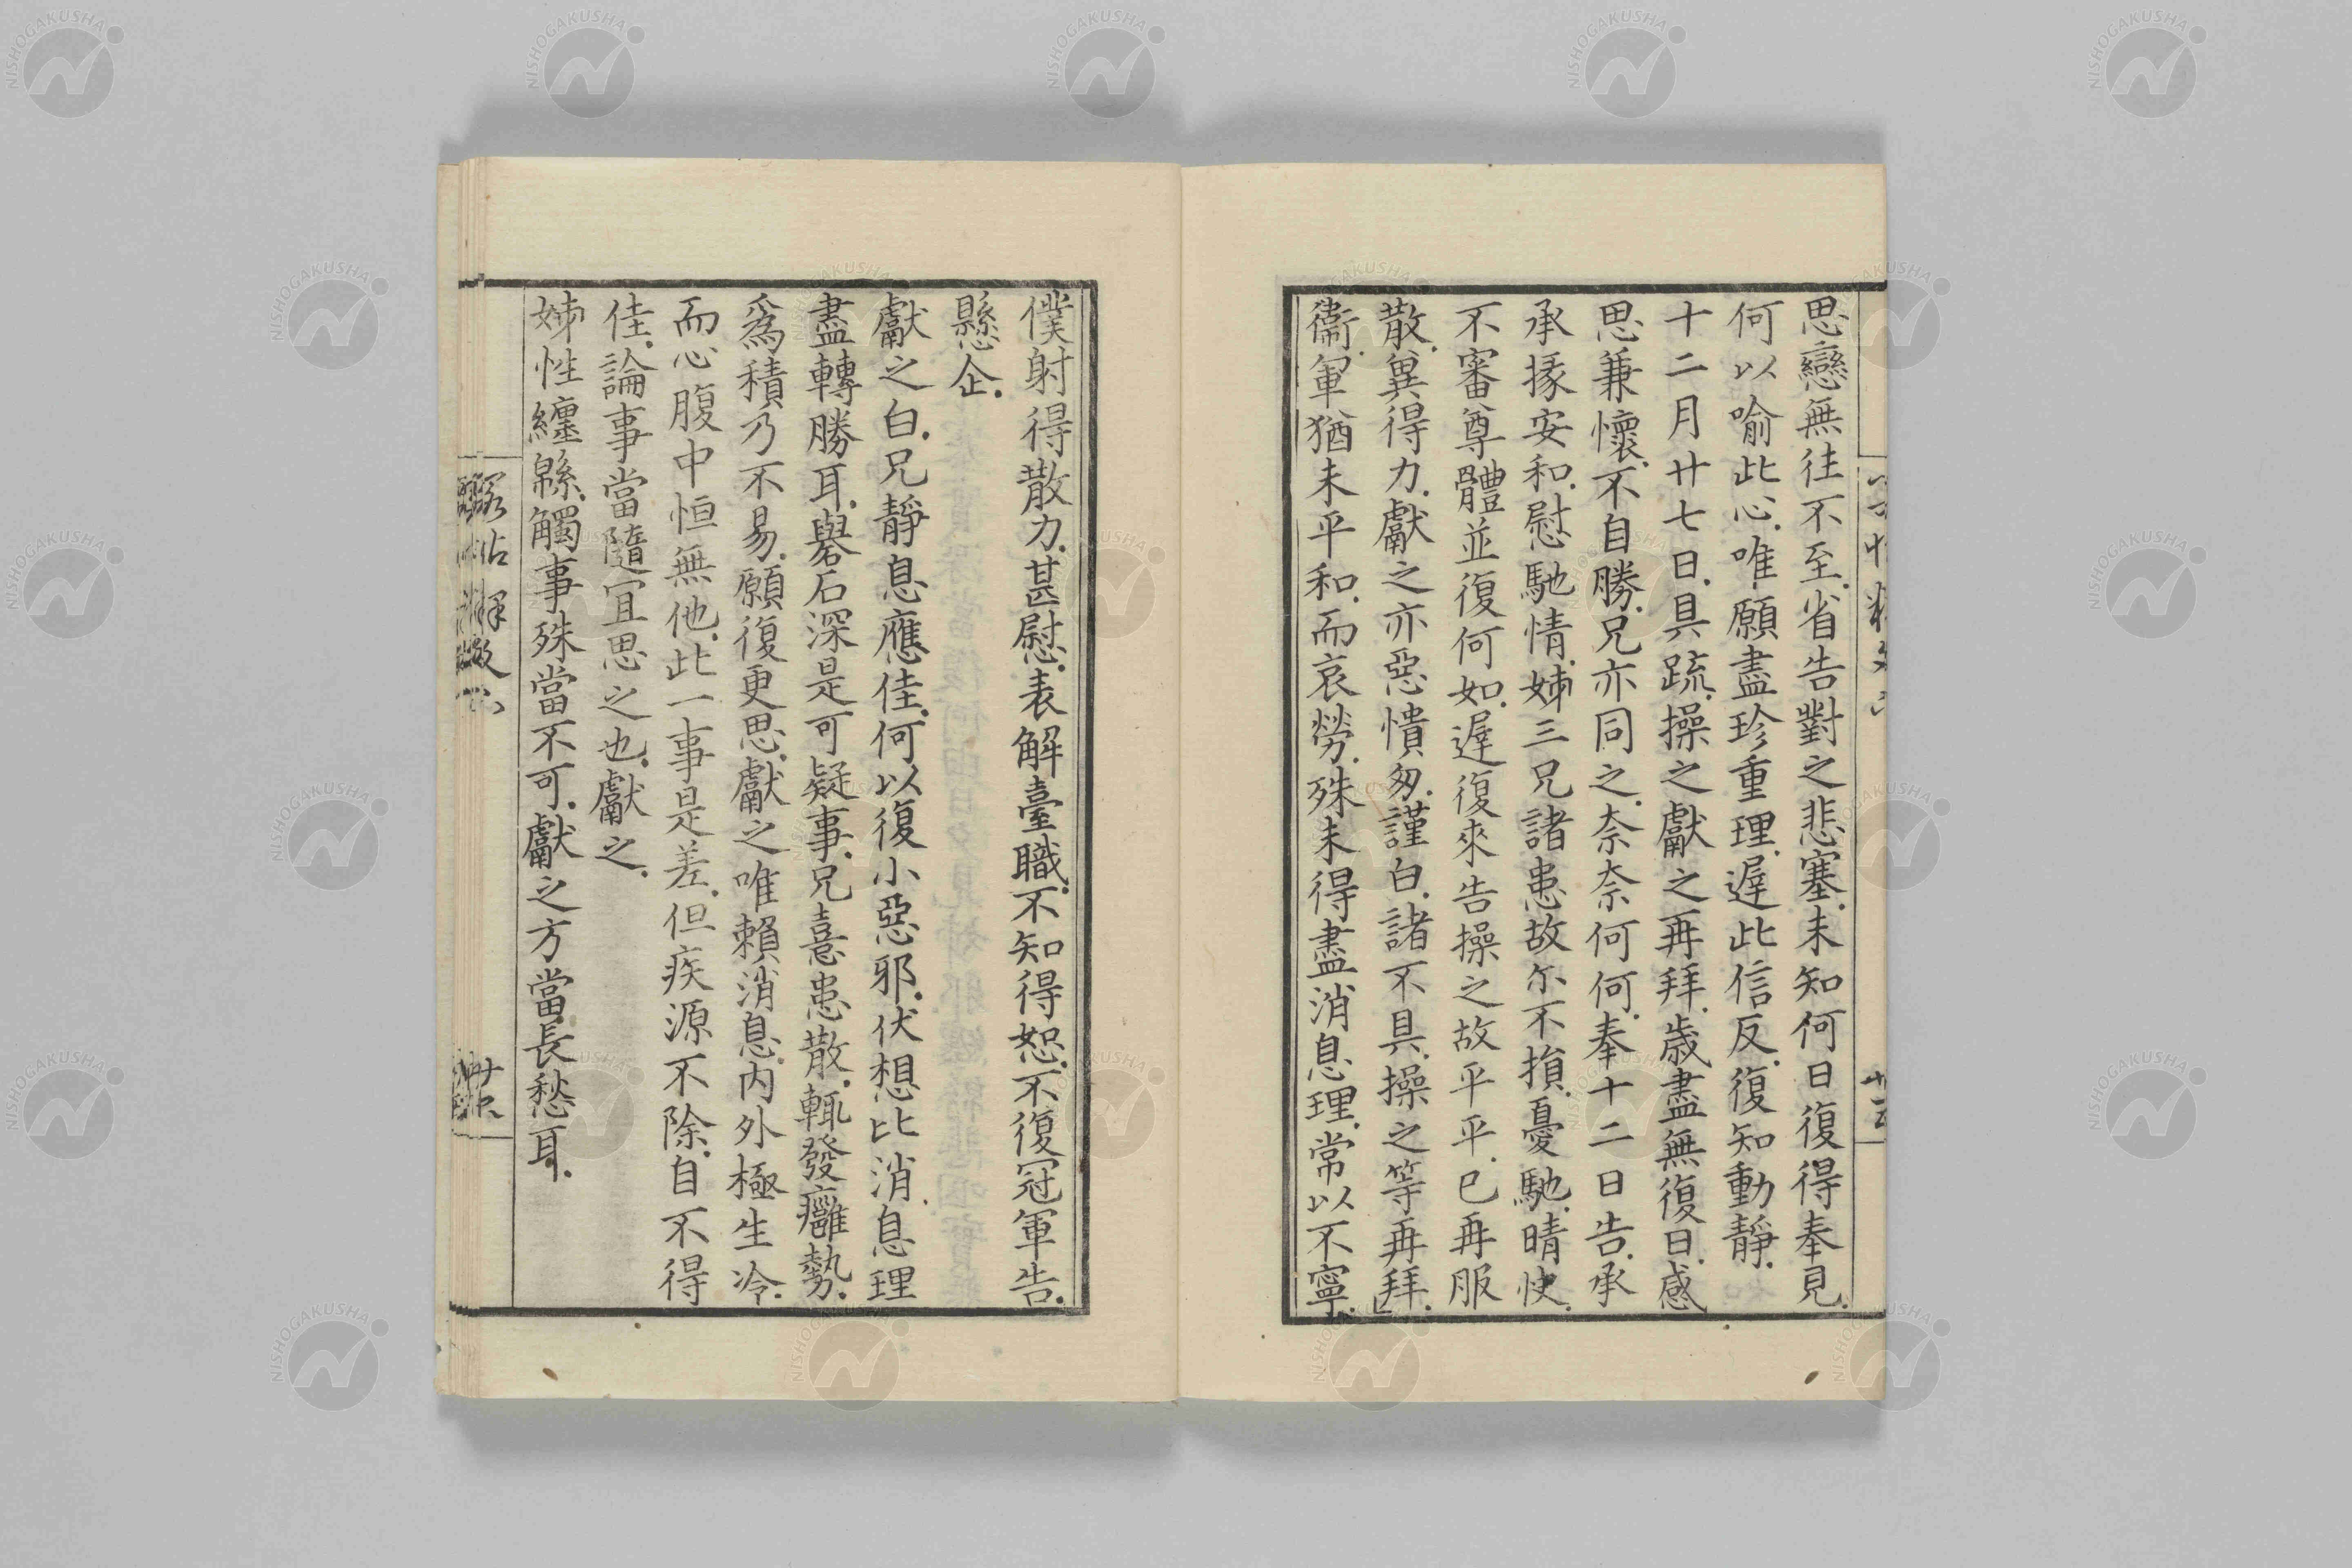 思戀無往不至.省告對之悲塞.未知何日復得奉見.
何以喻此心.唯願盡珍重理.遲此信反.復知動靜.
十二月廿七日.具疏.操之獻之再拜.歲盡無復日.感
思兼懷.不自勝.兄亦同之.奈奈何何.奉十二日告.承
承掾安和.慰馳情.姊三兄諸患故尔不損.憂馳.晴快.
不審尊體並復何如.遲復來告操之故平平.已再服
散.異得力.獻之亦惡憒匆.謹白.諸不具.操之等再拜.
衞軍猶未平和.而哀勞.殊未得盡消息理.常以不寧.
僕射得散力.甚慰.表解臺職.不知得恕.不復冠軍告.
懸企.
獻之白.兄靜息應佳.何以復小惡邪.伏想比消息理
盡轉勝耳.礜石深是可疑事.兄憙患散.輒發癰勢.
爲積乃不易.願復更思.獻之唯賴消息.內外極生冷.
而心腹中恒無他.此一事是差.但疾源不除.自不得
佳.論事當隨宜思之也.獻之.
姊性纏緜.觸事殊當不可.獻之方當長愁耳.